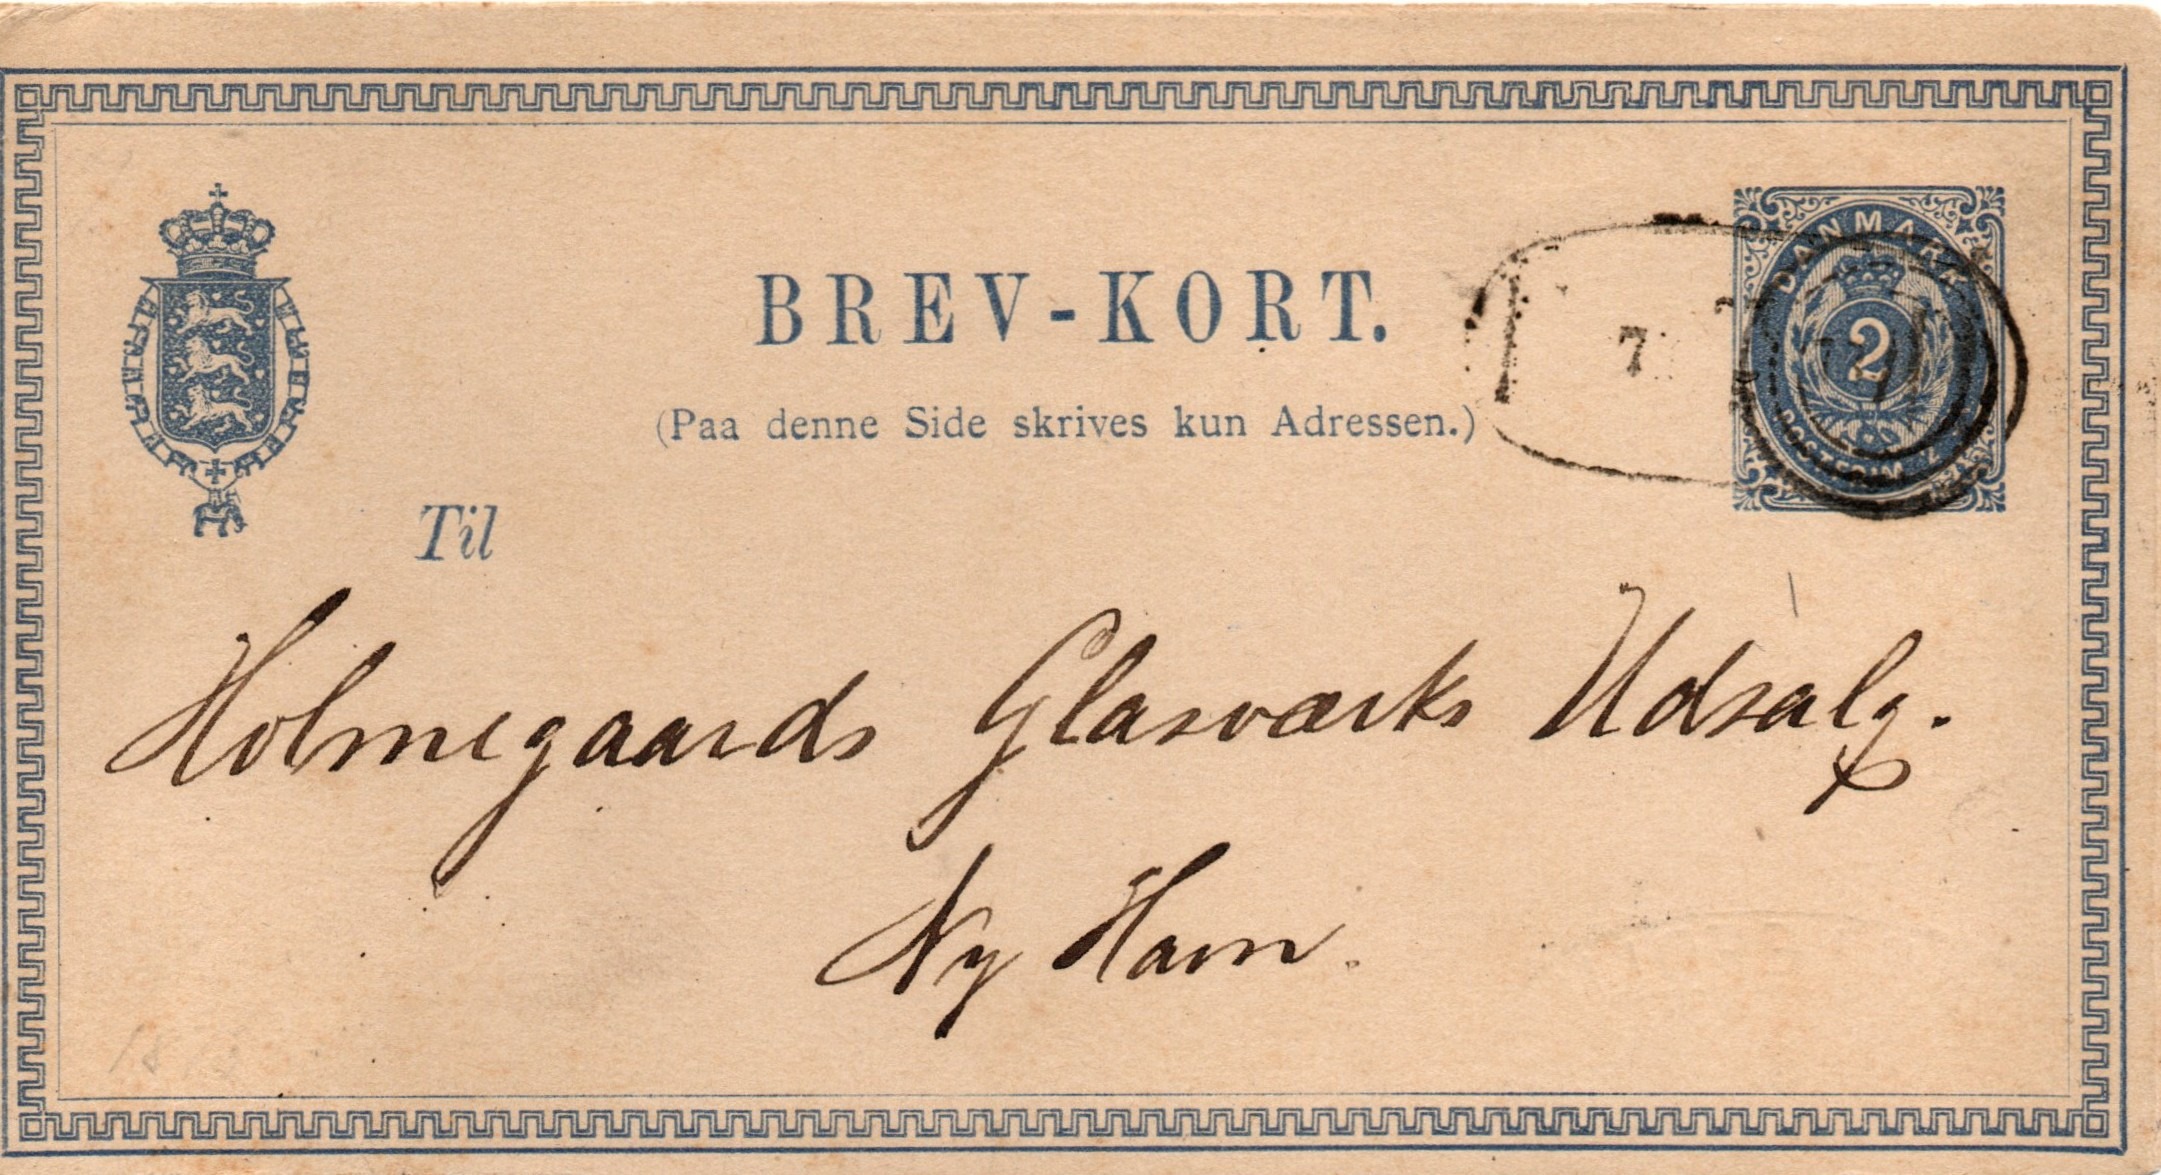 BREV-KORT.
DANMARK
2
POSTFRIM.
7
(Paa denne Side skrives kun Adressen.)
Til
Holmegaards Glasværks Udsalg.
Ny Havn.